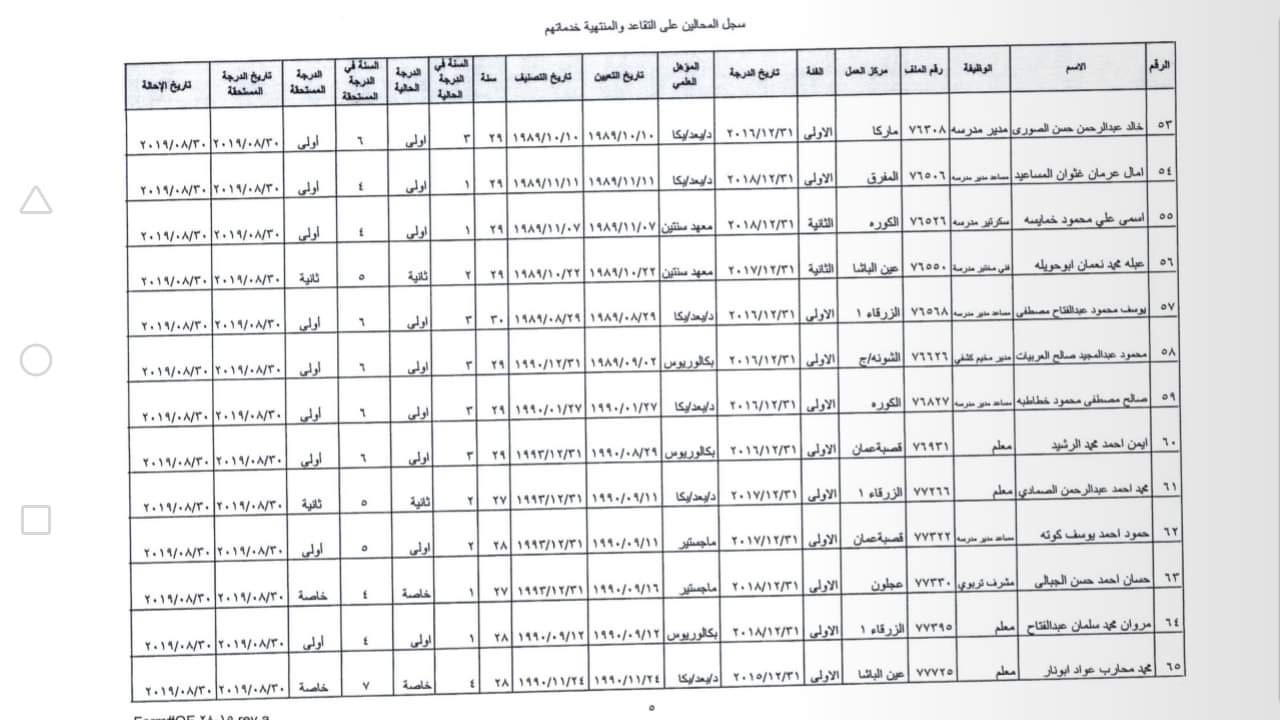 سجل المحالين على التقاعد والمنتهية خدماتهم
الرقم الاسم الوظيفة رقم الملف مركز العمل الفئة تاريخ الدرجة المؤهل العلمي تاريخ التعيين تاريخ التصنيف سنة السنة في الدرجة الحالية الدرجة الحالية السنة في الدرجة المستحقة الدرجة المستحقة تاريخ الدرجة المستحقة تاريخ الإحالة
٥٣ خالد عبدالرحمن حسن الصورى مدير مدرسه ٧٦٣٠٨ ماركا الاولى ٢٠١٦/١٢/٣١ د/بعد/بكا ١٩٨٩/١٠/١٠ ١٩٨٩/١٠/١٠ ٢٩ ٣ اولى ٦ أولى ٢٠١٩/٠٨/٣٠ ٢٠١٩/٠٨/٣٠
٥٤ امال عرمان غثوان المساعيد مساعد مدير مدرسه ٧٦٥٠٦ المفرق الاولى ٢٠١٨/١٢/٣١ د/بعد/بكا ١٩٨٩/١١/١١ ١٩٨٩/١١/١١ ٢٩ ١ اولى ٤ أولى ٢٠١٩/٠٨/٣٠ ٢٠١٩/٠٨/٣٠
٥٥ اسمى علي محمود خمايسه سكرتير مدرسه ٧٦٥٢٦ الكوره الثانية ٢٠١٨/١٢/٣١ معهد سنتين ١٩٨٩/١١/٠٧ ١٩٨٩/١١/٠٧ ٢٩ ١ اولى ٤ أولى ٢٠١٩/٠٨/٣٠ ٢٠١٩/٠٨/٣٠
٥٦ عبله محمد نعمان ابوحويله فني مختبر مدرسة ٧٦٥٥٠ عين الباشا الثانية ٢٠١٧/١٢/٣١ معهد سنتين ١٩٨٩/١٠/٢٢ ١٩٨٩/١٠/٢٢ ٢٩ ٢ ثانية ٥ ثانية ٢٠١٩/٠٨/٣٠ ٢٠١٩/٠٨/٣٠
٥٧ يوسف محمود عبدالفتاح مصطفى مساعد مدير مدرسه ٧٦٥٦٨ الزرقاء ١ الاولى ٢٠١٦/١٢/٣١ د/بعد/بكا ١٩٨٩/٠٨/٢٩ ١٩٨٩/٠٨/٢٩ ٣٠ ٣ اولى ٦ أولى ٢٠١٩/٠٨/٣٠ ٢٠١٩/٠٨/٣٠
٥٨ محمود عبدالمجيد صالح العربيات مدير مخيم كشفي ٧٦٦٢٦ الشونه/ج الاولى ٢٠١٦/١٢/٣١ بكالوريوس ١٩٨٩/٠٩/٠٢ ١٩٩٠/١٢/٣١ ٢٩ ٣ اولى ٦ أولى ٢٠١٩/٠٨/٣٠ ٢٠١٩/٠٨/٣٠
٥٩ صالح مصطفى محمود خطاطبه مساعد مدير مدرسه ٧٦٨٢٧ الكوره الاولى ٢٠١٦/١٢/٣١ د/بعد/بكا ١٩٩٠/٠١/٢٧ ١٩٩٠/٠١/٢٧ ٢٩ ٣ اولى ٦ أولى ٢٠١٩/٠٨/٣٠ ٢٠١٩/٠٨/٣٠
٦٠ ايمن احمد محمد الرشيد معلم ٧٦٩٣١ قصبةعمان الاولى ٢٠١٦/١٢/٣١ بكالوريوس ١٩٩٠/٠٨/٢٩ ١٩٩٣/١٢/٣١ ٢٩ ٣ اولى ٦ أولى ٢٠١٩/٠٨/٣٠ ٢٠١٩/٠٨/٣٠
٦١ محمد احمد عبدالرحمن الصمادي معلم ٧٧٢٦٦ الزرقاء ١ الاولى ٢٠١٧/١٢/٣١ د/بعد/بكا ١٩٩٠/٠٩/١١ ١٩٩٣/١٢/٣١ ٢٧ ٢ ثانية ٥ ثانية ٢٠١٩/٠٨/٣٠ ٢٠١٩/٠٨/٣٠
٦٢ حمود احمد يوسف كوته مساعد مدير مدرسه ٧٧٣٢٢ قصبةعمان الاولى ٢٠١٧/١٢/٣١ ماجستير ١٩٩٠/٠٩/١١ ١٩٩٣/١٢/٣١ ٢٨ ٢ اولى ٥ أولى ٢٠١٩/٠٨/٣٠ ٢٠١٩/٠٨/٣٠
٦٣ حسان احمد حسن الجبالى مشرف تربوي ٧٧٣٣٠ عجلون الاولى ٢٠١٨/١٢/٣١ ماجستير ١٩٩٠/٠٩/١٦ ١٩٩٣/١٢/٣١ ٢٧ ١ خاصة ٤ خاصة ٢٠١٩/٠٨/٣٠ ٢٠١٩/٠٨/٣٠
٦٤ مروان محمد سلمان عبدالفتاح معلم ٧٧٣٩٥ الزرقاء ١ الاولى ٢٠١٨/١٢/٣١ بكالوريوس ١٩٩٠/٠٩/١٢ ١٩٩٠/٠٩/١٢ ٢٨ ١ اولى ٤ أولى ٢٠١٩/٠٨/٣٠ ٢٠١٩/٠٨/٣٠
٦٥ محمد محارب عواد ابونار معلم ٧٧٧٢٥ عين الباشا الاولى ٢٠١٥/١٢/٣١ د/بعد/بكا ١٩٩٠/١١/٢٤ ١٩٩٠/١١/٢٤ ٢٨ ٤ خاصة ٧ خاصة ٢٠١٩/٠٨/٣٠ ٢٠١٩/٠٨/٣٠
٥